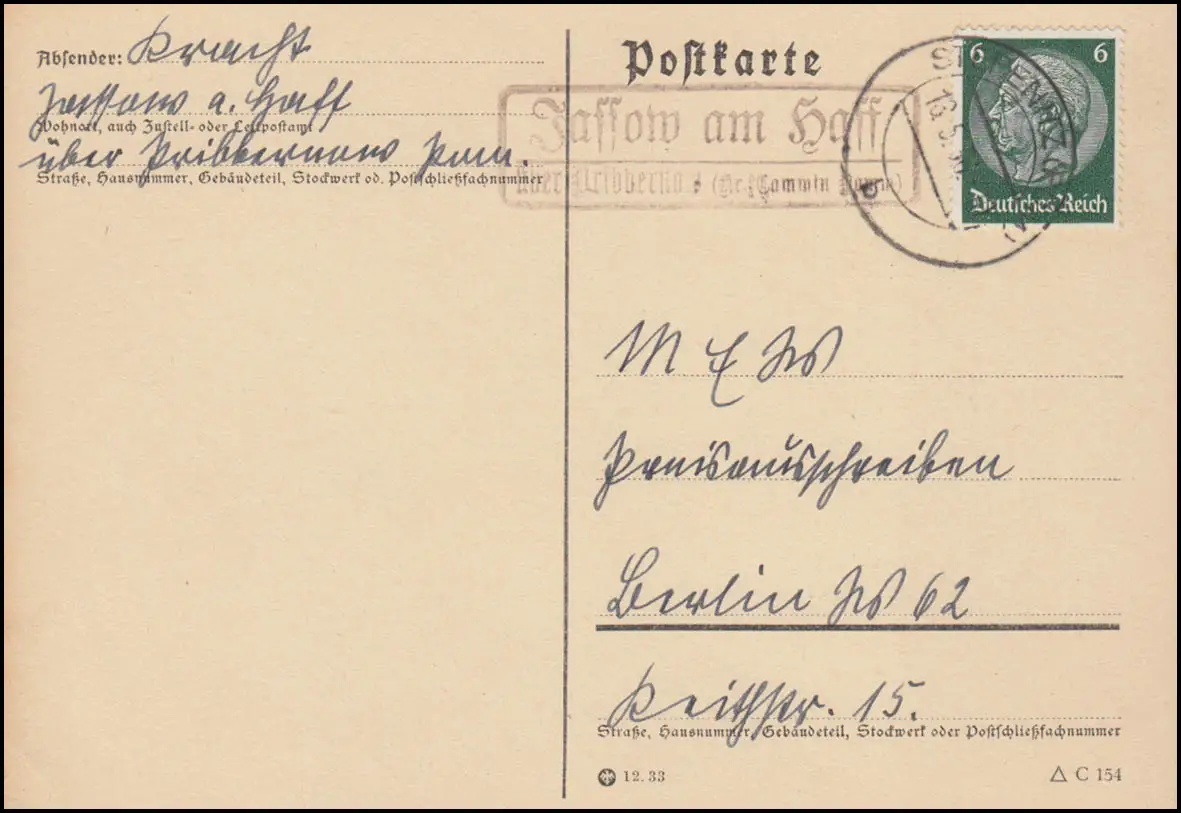 Absender: Kracht
Jassow a. Haff
Wohnort, auch Zustell- oder Leitpostamt
über Pribbernow Pom.
Straße, Hausnummer, Gebäudeteil, Stockwerk od. Postschließfachnummer
Postkarte
Jassow am Haff
über Pribbernow (Kr. Cammin Pomm)
6 6
Deutsches Reich
M E W
Preisausschreiben
Berlin W 62
Keithstr. 15.
Straße, Hausnummer, Gebäudeteil, Stockwerk oder Postschließfachnummer
12. 33
C 154